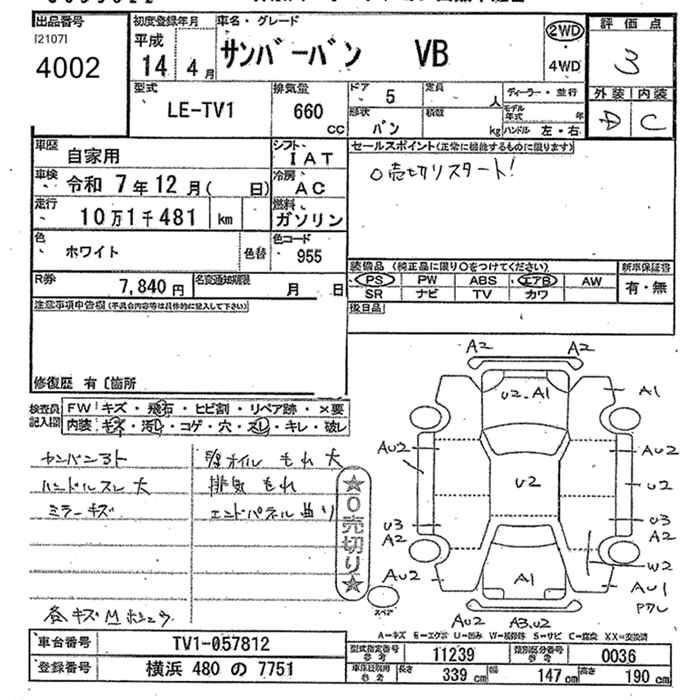 出品番号
[2107]
4002
初度登録年月
平成
14年 4月
車名・グレード
サンバーバン VB
2WD
・
4WD
評価点
3
外装 内装
D C
型式
LE-TV1
排気量
660
CC
ドア
5
定員
人
形状
バン
積載
kg
ディーラー・並行
モデル年式 年
ハンドル 左・右
車歴
自家用
シフト
IAT
車検
令和 7年 12月( 日)
冷房
AC
走行
10万1千481 km
燃料
ガソリン
色
ホワイト
色替
色コード
955
R券
7,840円
名変通知期限
月 日
セールスポイント(正常に機能するものに限ります)
0売切りスタート!
装備品(純正品に限り○をつけてください)
PS PW ABS エアB AW
SR ナビ TV カワ
新車保証書
有・無
後日品
注意事項申告欄(不具合内容等は具体的に記入して下さい)
修復歴 有 [箇所
検査員
記入欄
FW キズ・飛石・ヒビ割・リペア跡・×要
内装 キズ・汚れ・コゲ・穴・スレ・キレ・破レ
ハンドルスレ 大
ミラーキズ
オイル もれ 大
排気 もれ
エンドパネル 曲り
★0売切り★
A2 A2
U2.A1
A1
AU2
AU2
U2
U2
U3
A2
U3
A2
W2
AU2
A1
AU1
AU2 A3.U2
スペア
A-キズ E-エクボ U-凹み W-補修跡 S-サビ C-腐食 XX-交換済
車台番号
TV1-057812
登録番号
横浜 480 の 7751
型式指定番号
参考
11239
類別区分番号
参考
0036
長さ 339 cm
幅 147 cm
高さ 190 cm